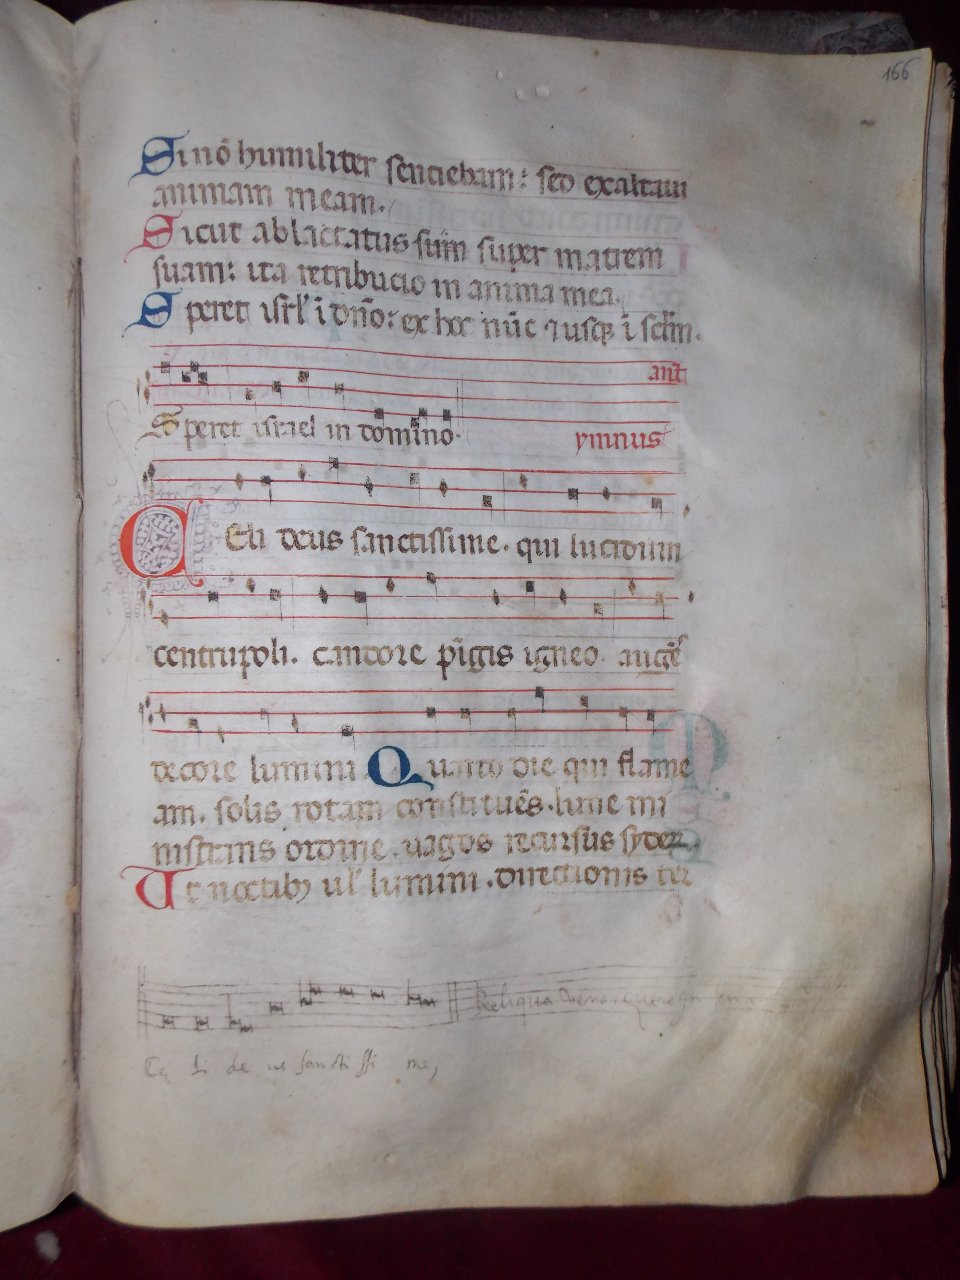 166
Si nō humiliter sentiebam: sed exaltaui
animam meam.
Sicut ablactatus sum̄ super matrem
suam: ita retribucio in anima mea.
Speret isrl' ī dn̄o: ex hoc nūc ⁊ usqꝫ ī sclm̄.
ant̄
Speret israel in domino.
ymnus
Celi deus sanctissime. qui lucidum
centrū poli. candore pīgis igneo. augēs
decore lumini Quarto die qui flāme
am. solis rotam constituēs. lune mi
nistrans ordinē. uagos recursus syderꝝ
Ut noctibꝫ ul' lumini. directionis ter
Reliqua
Cæ li de us sancti ssi me,